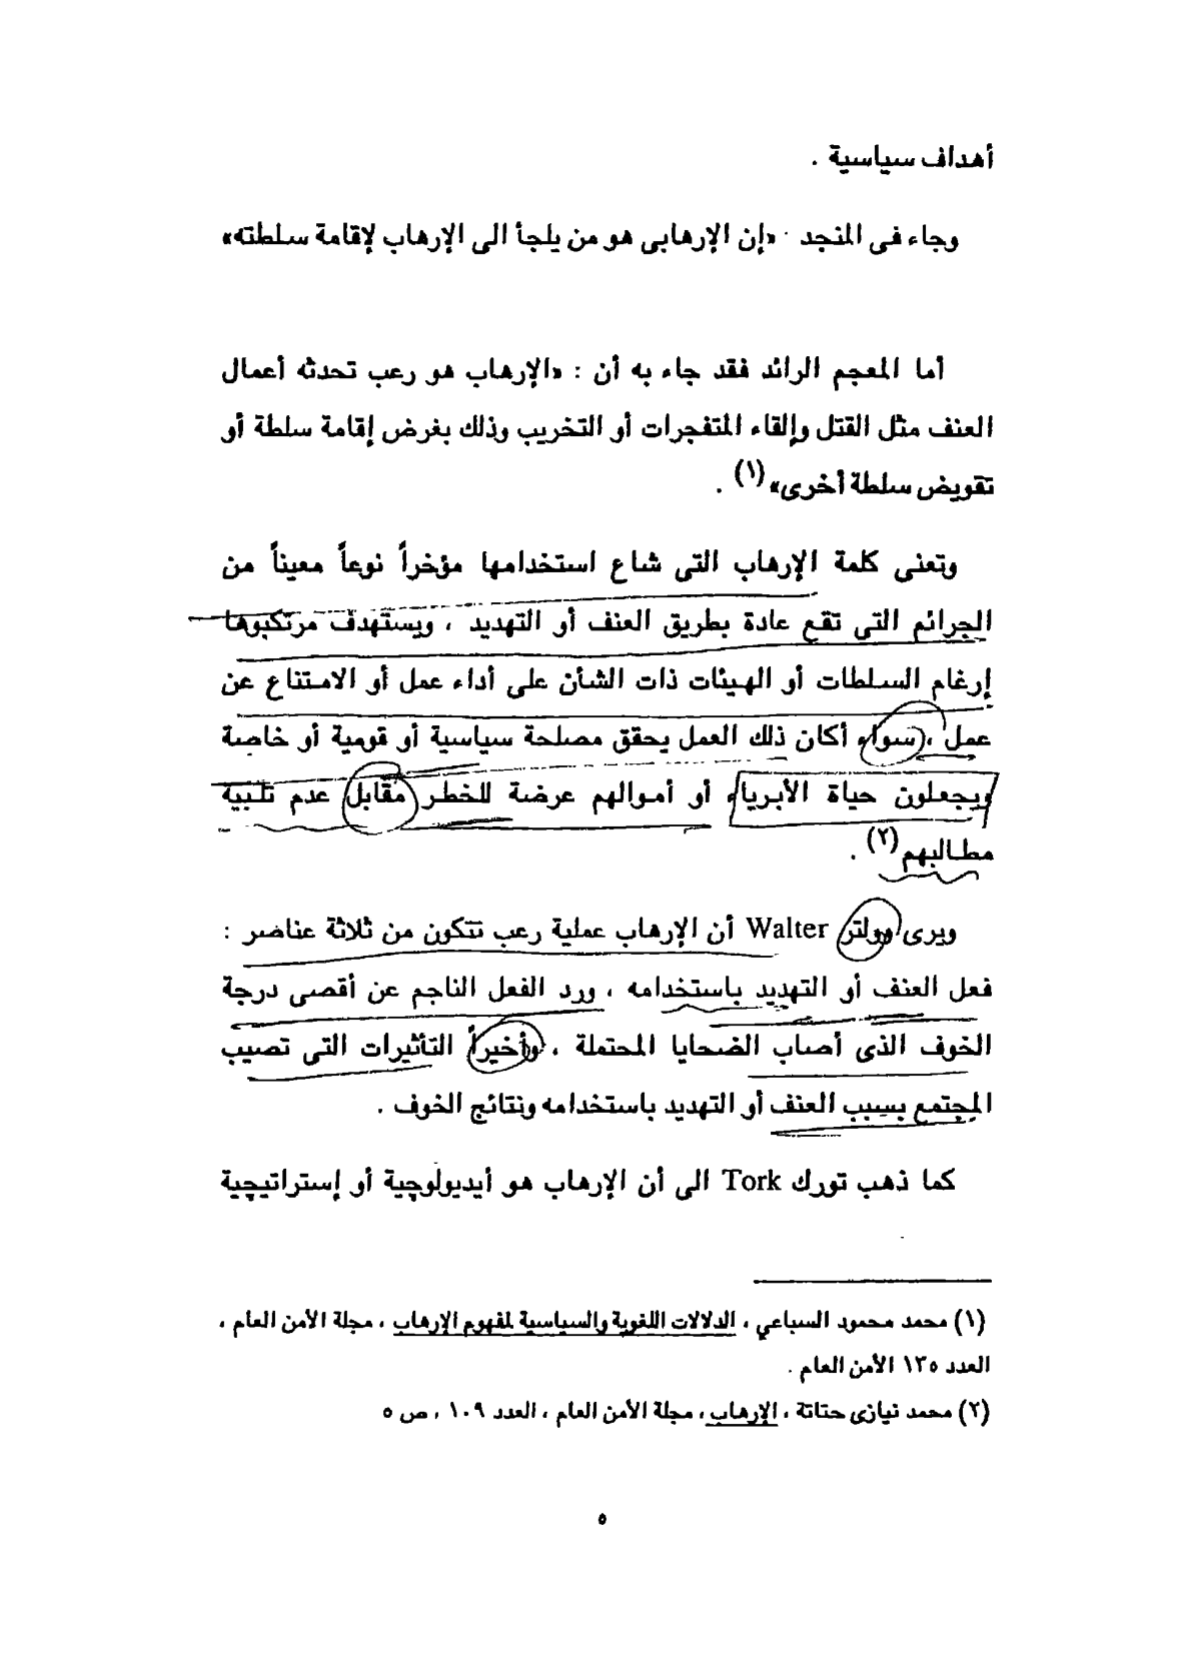 أهداف سياسية .
وجاء فى المنجد · «إن الإرهابى هو من يلجأ الى الإرهاب لإقامة سلطته»
أما المعجم الرائد فقد جاء به أن : «الإرهاب هو رعب تحدثه أعمال
العنف مثل القتل وإلقاء المتفجرات أو التخريب وذلك بغرض إقامة سلطة أو
تقويض سلطة أخرى» (١) .
وتعنى كلمة الإرهاب التى شاع استخدامها مؤخراً نوعاً معيناً من
الجرائم التى تقع عادة بطريق العنف أو التهديد ، ويستهدف مرتكبوها
إرغام السلطات أو الهيئات ذات الشأن على أداء عمل أو الامتناع عن
عمل ، سواء أكان ذلك العمل يحقق مصلحة سياسية أو قومية أو خاصة
ويجعلون حياة الأبرياء أو أموالهم عرضة للخطر مقابل عدم تلبية
مطالبهم (٢) .
ويرى وولتر Walter أن الإرهاب عملية رعب تتكون من ثلاثة عناصر :
فعل العنف أو التهديد باستخدامه ، ورد الفعل الناجم عن أقصى درجة
الخوف الذى أصاب الضحايا المحتملة ، وأخيراً التأثيرات التى تصيب
المجتمع بسبب العنف أو التهديد باستخدامه ونتائج الخوف .
كما ذهب تورك Tork الى أن الإرهاب هو أيديولوجية أو إستراتيجية
(١) محمد محمود السباعي ، الدلالات اللغوية والسياسية لمفهوم الإرهاب ، مجلة الأمن العام ،
العدد ١٣٥ الأمن العام .
(٢) محمد نيازى حتاتة ، الإرهاب ، مجلة الأمن العام ، العدد ١٠٩ ، ص ٥
٥